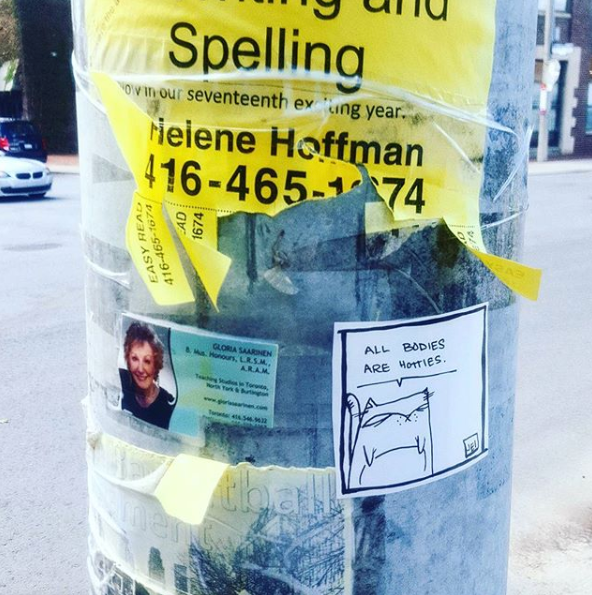 and
Spelling
now in our seventeenth exciting year.
Helene Hoffman
416-465-1674
EASY READ
416-465-1674
AD
1674
GLORIA SAARINEN
B. Mus. Honours, L.R.S.M.,
A.R.A.M.
Teaching Studios in Toronto,
North York & Burlington
www.gloriasaarinen.com
ALL BODIES
ARE HOTTIES.